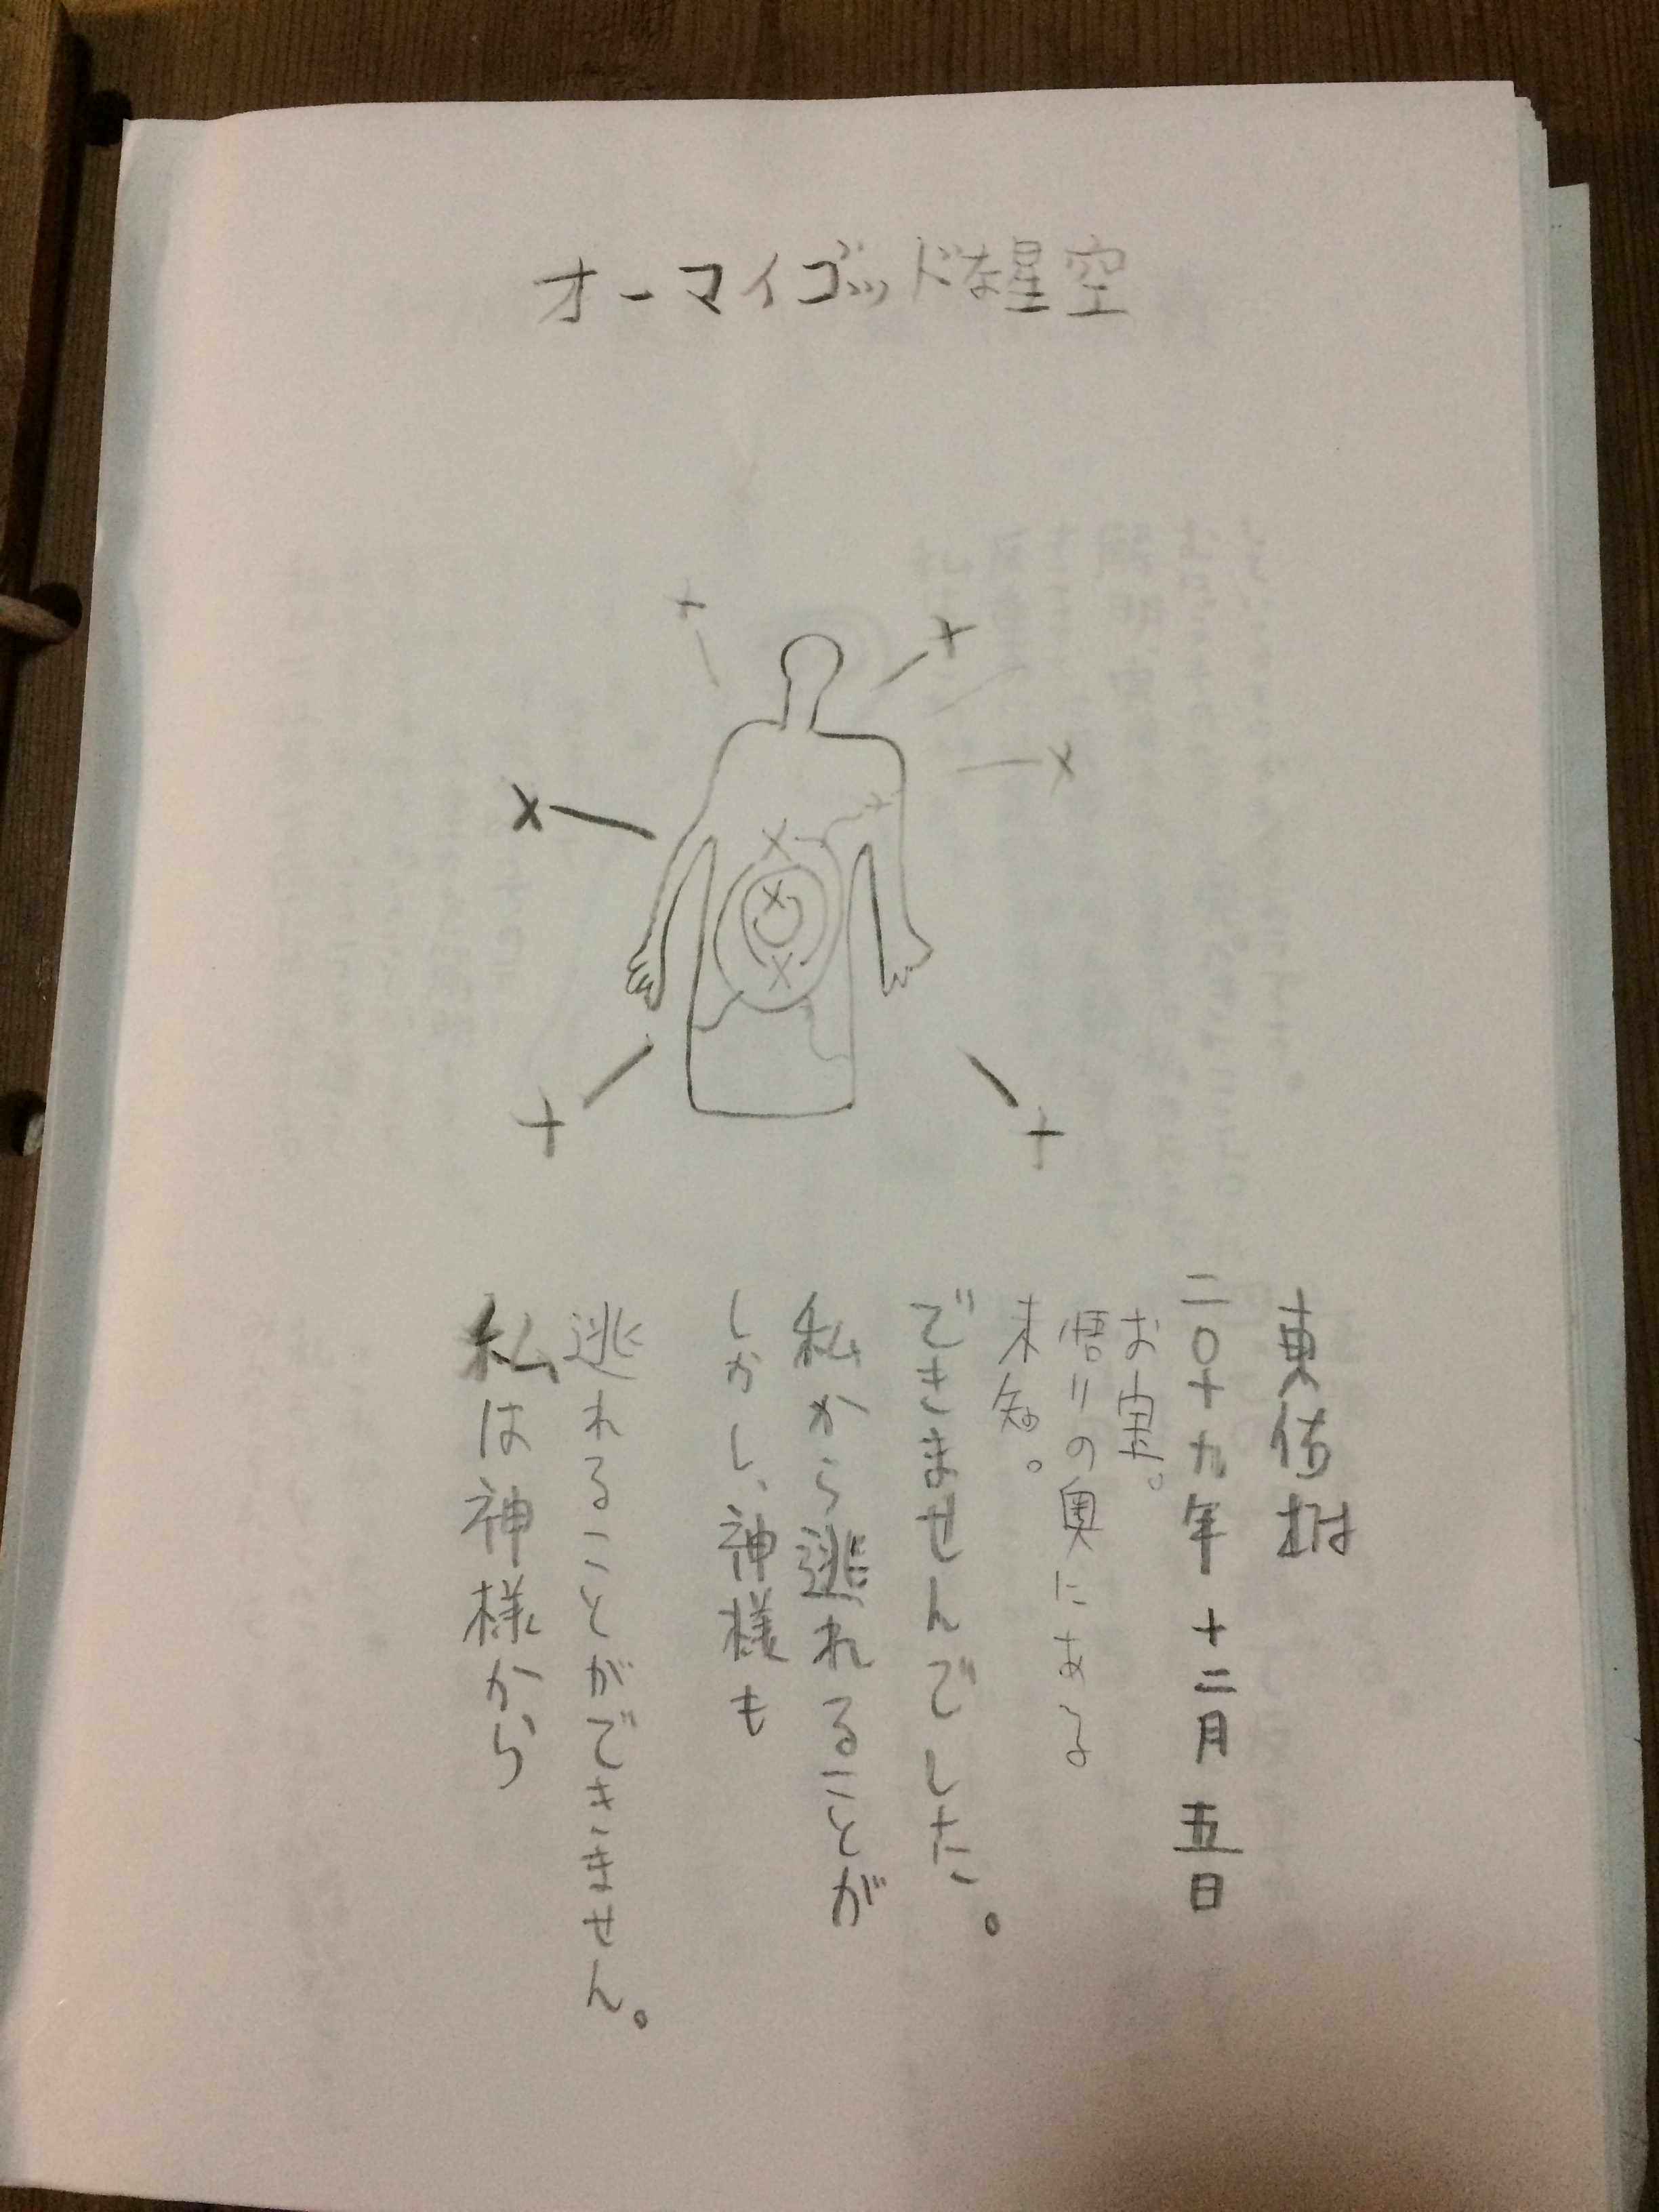 オーマイゴッドな星空
私は神様から
逃れることができません。
しかし、神様も
私から逃れることが
できませんでした。
未知。
悟りの奥にある
お宝。
二〇十九年 十二月 五日
東